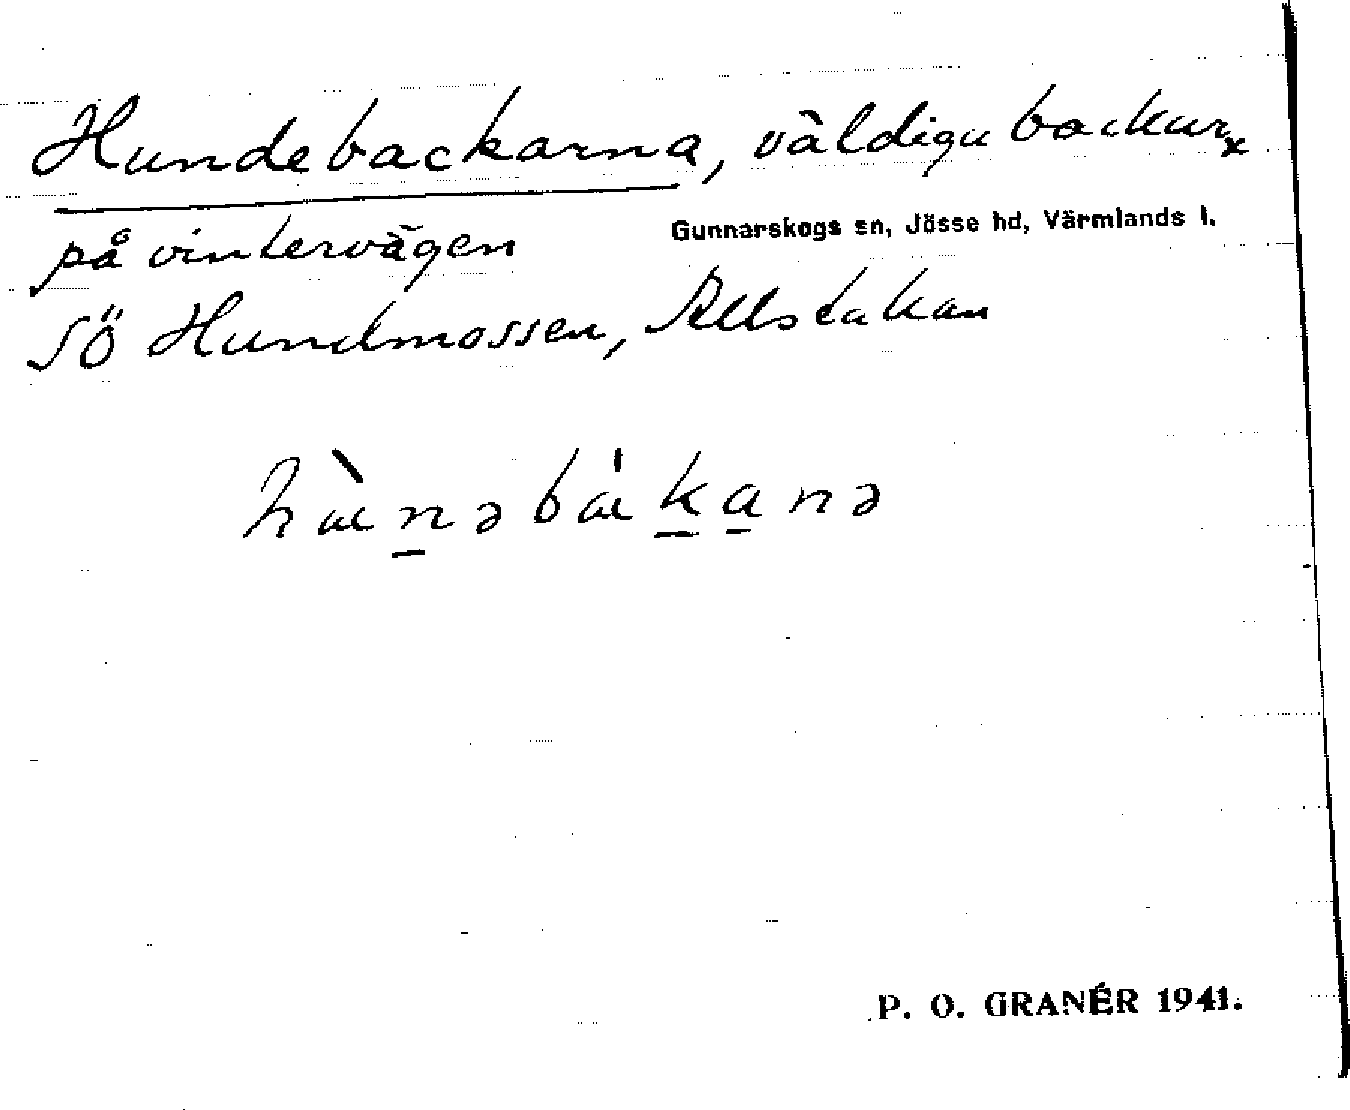 Hundebackarna, väldiga backar x
Gunnarskogs sn, Jösse hd, Värmlands l.
på vintervägen
SÖ Hundmossen, Allstakan
P. O. GRANÉR 1941.